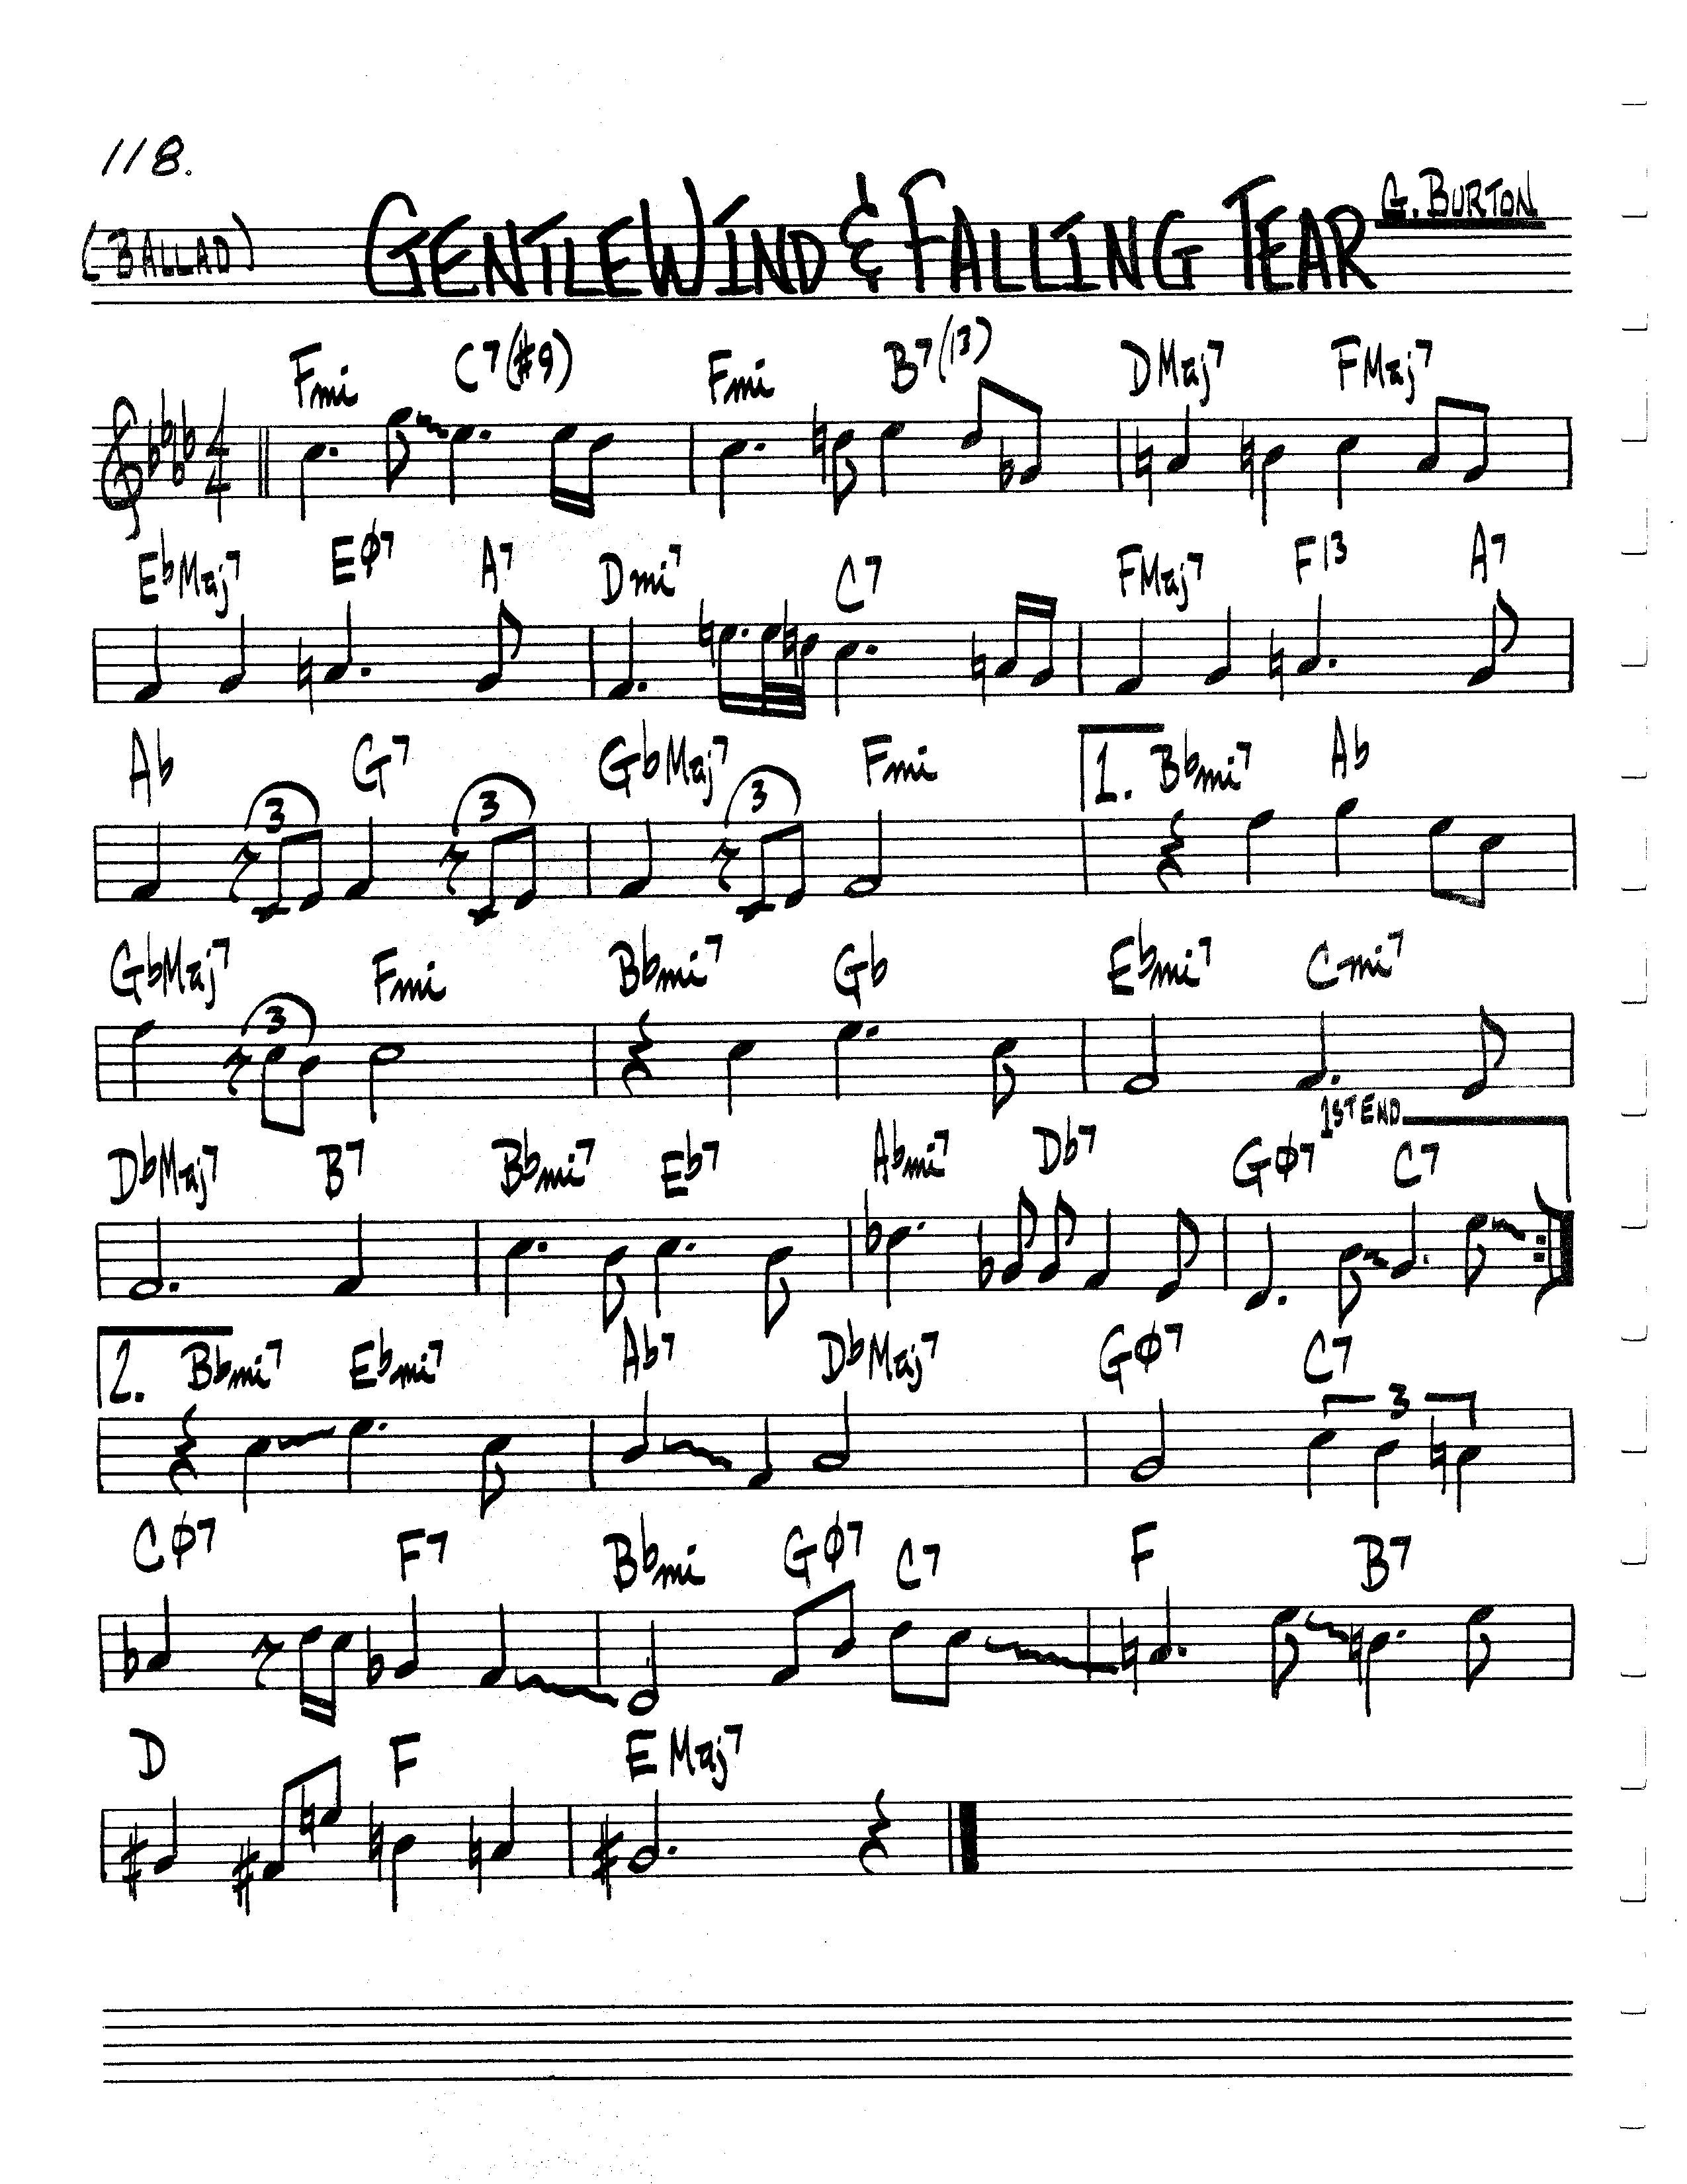 118.
G. BURTON
(BALLAD) GENTLE WIND & FALLING TEAR
Fmi C7(#9) Fmi B7(13) DMaj7 FMaj7
4/4
EbMaj7 Eø7 A7 Dmi7 C7 FMaj7 F13 A7
Ab G7 GbMaj7 Fmi 1. Bbmi7 Ab
3 3 3
GbMaj7 Fmi Bbmi7 Gb Ebmi7 C-mi7
3
1ST END
DbMaj7 B7 Bbmi7 Eb7 Abmi7 Db7 Gø7 C7
2. Bbmi7 Ebmi7 Ab7 DbMaj7 Gø7 C7
3
Cø7 F7 Bbmi Gø7 C7 F B7
D F EMaj7